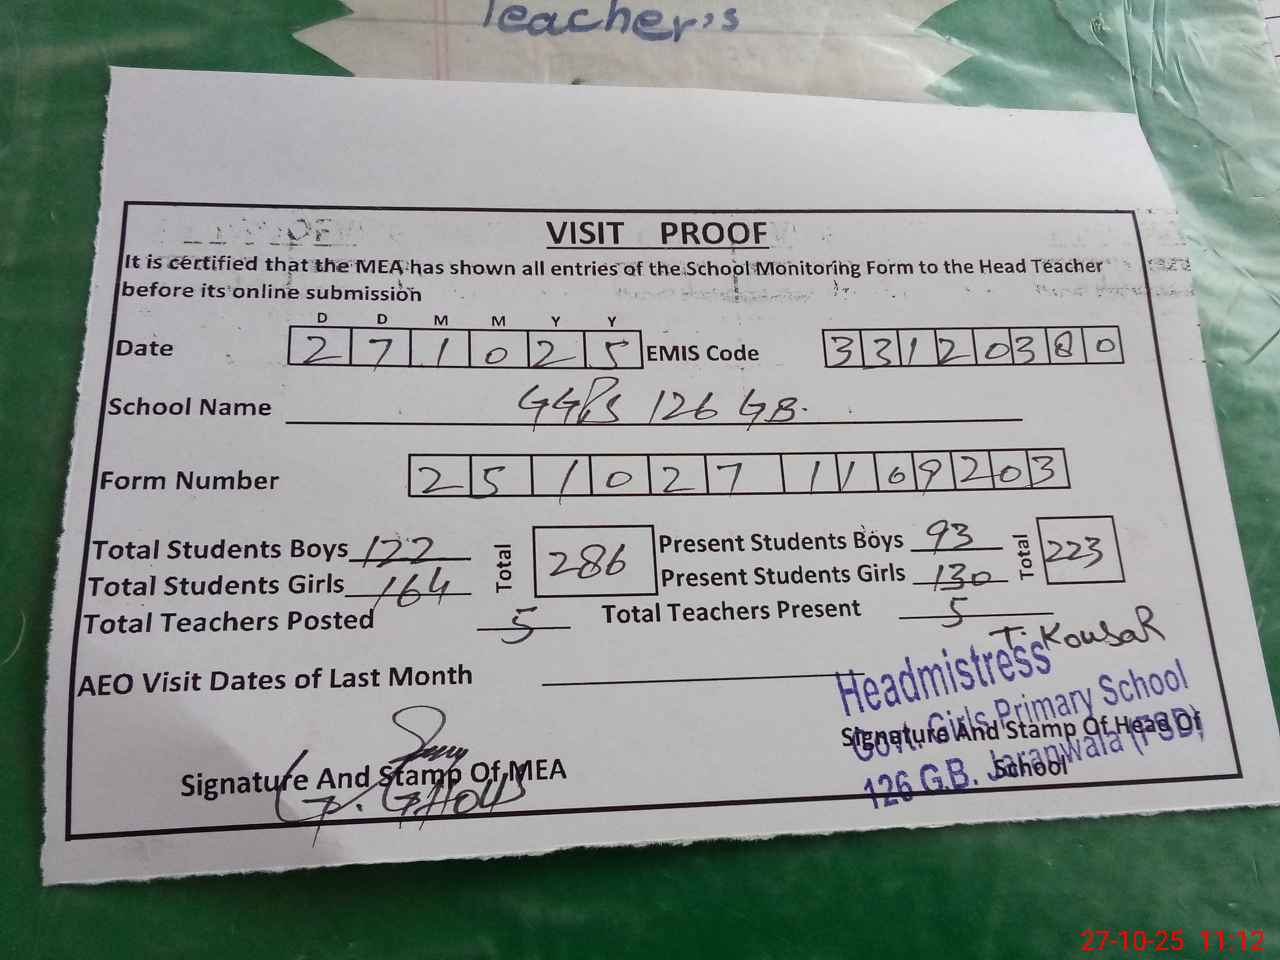 Teacher's
VISIT PROOF
It is certified that the MEA has shown all entries of the School Monitoring Form to the Head Teacher
before its online submission
D D M M Y Y
Date 2 7 1 0 2 5 EMIS Code 3 3 1 2 0 3 8 0
School Name GGPS 126 GB.
Form Number 2 5 1 0 2 7 1 1 0 9 2 0 3
Total Students Boys 122 Total 286 Present Students Boys 93 Total 223
Total Students Girls 164 Present Students Girls 130
Total Teachers Posted 5 Total Teachers Present 5
T. Kousar
AEO Visit Dates of Last Month
Headmistress
Govt. Girls Primary School
126 G.B. Jaranwala (FSD)
Signature And Stamp Of MEA
Signature And Stamp Of Head Of
School
27-10-25 11:12